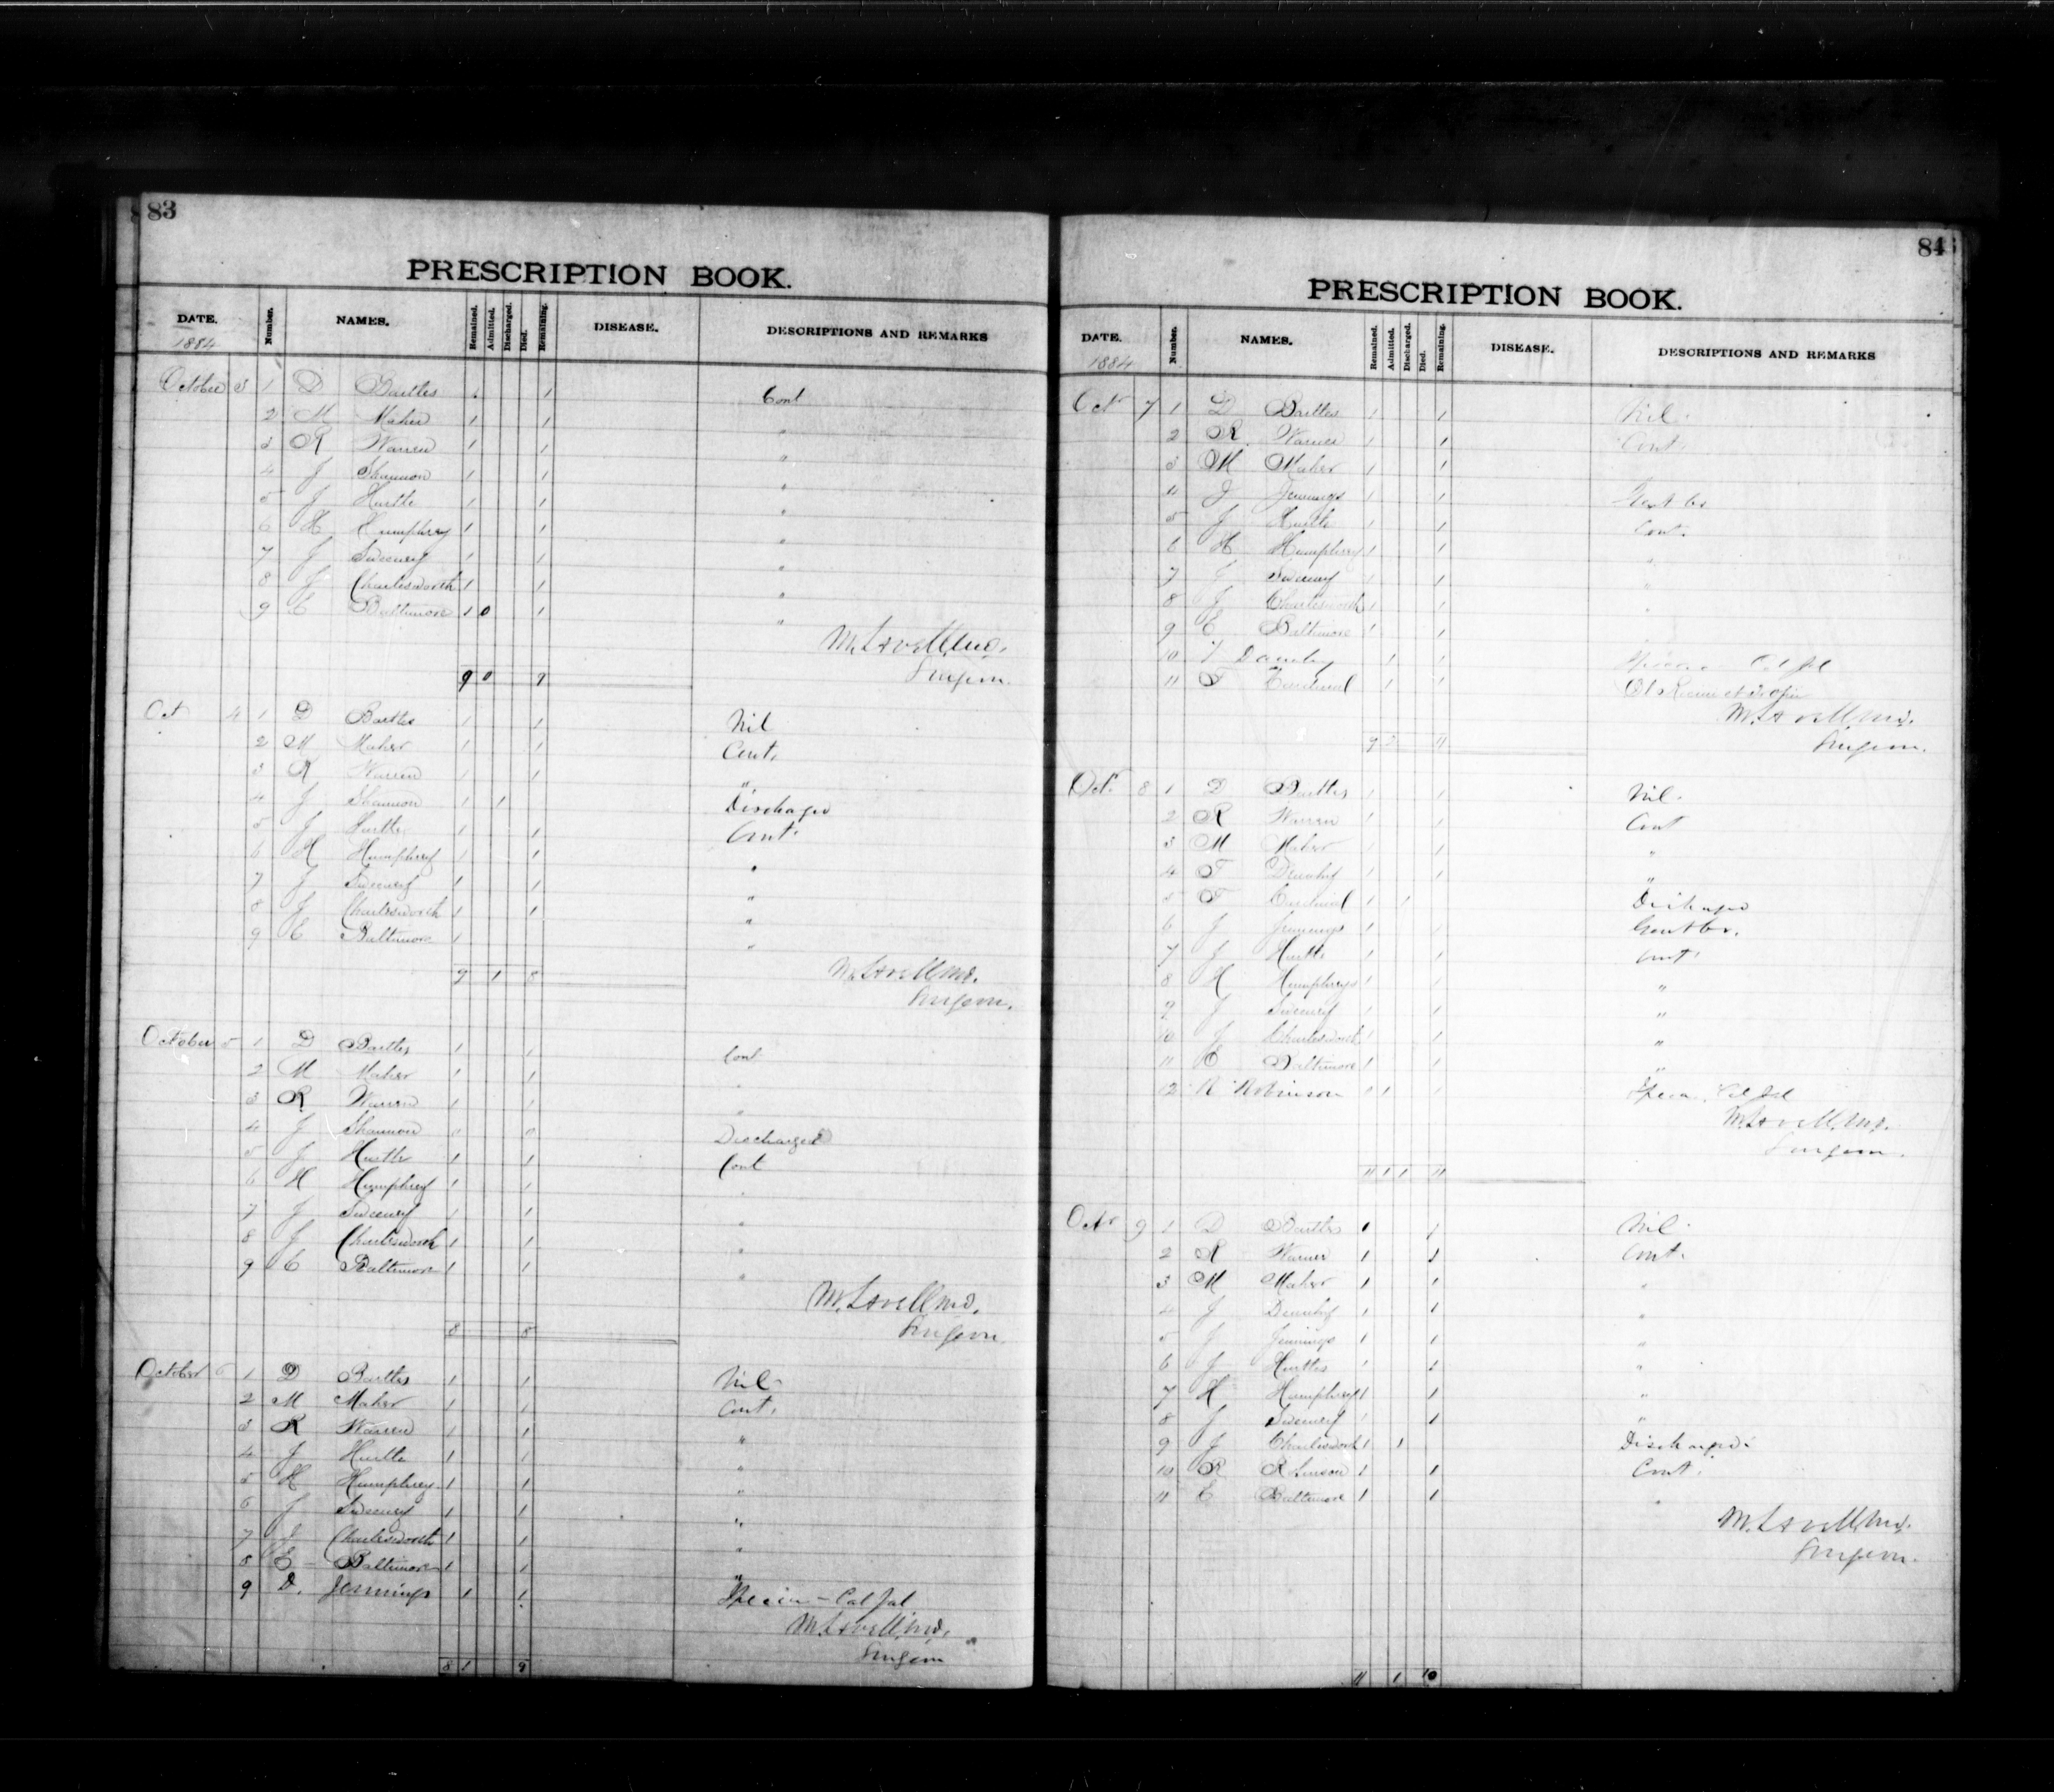 83
PRESCRIPTION BOOK.
DATE. Number. NAMES. Remained. Admitted. Discharged. Died. Remaining. DISEASE. DESCRIPTIONS AND REMARKS
1884
October 3 1 D Bartles 1 1 Cont
2 M Maher 1 1 "
3 R Warren 1 1 "
4 J Shannon 1 1 "
5 J Hurtle 1 1 "
6 H Humphrey 1 1 "
7 J Sweeney 1 1 "
8 J Charlesworth 1 1 "
9 E Baltimore 1 0 1 "
M. Lavell, MD.
Surgeon.
9 0 9
Oct 4 1 D Bartles 1 1 Nil
2 M Maher 1 1 Cont.
3 R Warren 1 1 "
4 J Shannon 1 1 Discharged
5 J Hurtle 1 1 Cont.
6 H Humphrey 1 1 "
7 J Sweeney 1 1 "
8 J Charlesworth 1 1 "
9 E Baltimore 1 "
9 1 8 M. Lavell MD.
Surgeon.
October 5 1 D Bartles 1 1 Cont
2 M Maher 1 1 "
3 R Warren 1 1 "
4 J Shannon 0 0 Discharged
5 J Hurtle 1 1 Cont
6 H Humphrey 1 1 "
7 J Sweeney 1 1 "
8 J Charlesworth 1 1 "
9 E Baltimore 1 1 "
M. Lavell MD.
8 8 Surgeon.
October 6 1 D Bartles 1 1 Nil
2 M Maher 1 1 Cont.
3 R Warren 1 1 "
4 J Hurtle 1 1 "
5 H Humphrey 1 1 "
6 J Sweeney 1 1 "
7 J Charlesworth 1 1 "
8 E Baltimore 1 1 "
9 D. Jennings 1 1 Cal Jal
M. Lavell, MD.
Surgeon
8 1 9
84
PRESCRIPTION BOOK.
DATE. Number. NAMES. Remained. Admitted. Discharged. Died. Remaining. DISEASE. DESCRIPTIONS AND REMARKS
1884
Oct 7 1 D Bartles 1 1 Nil.
2 R Warren 1 1 Cont.
3 M Maher 1 1
4 J Jennings 1 1
5 J Hurtle 1 1 Cont.
6 H Humphrey 1 1 "
7 J Sweeney 1 1 "
8 J Charlesworth 1 1 "
9 E Baltimore 1 1
10 1 1 Cal Jal
11 F Cardinal 1 1
M. Lavell, MD.
9 2 11 Surgeon.
Oct 8 1 D Bartles 1 1 Nil.
2 R Warren 1 1 Cont
3 M Maher 1 1 "
4 F 1 1 "
5 F Cardinal 1 1 Discharged
6 J Jennings 1 1
7 J Hurtle 1 1 Cont.
8 H Humphreys 1 1 "
9 J Sweeney 1 1 "
10 J Charlesworth 1 1 "
11 E Baltimore 1 1 "
12 R Robinson 0 1 1 Cal Jal
M. Lavell, MD.
Surgeon.
11 1 1 11
Oct 9 1 D Bartles 1 1 Nil
2 R Warren 1 1 Cont.
3 M Maher 1 1 "
4 J 1 1 "
5 J Jennings 1 1 "
6 J Hurtles 1 1 "
7 H Humphrey 1 1 "
8 J Sweeney 1 1 "
9 J Charlesworth 1 1 Discharged
10 R 1 1 Cont.
11 E Baltimore 1 1 "
M. Lavell, MD.
Surgeon.
11 1 10